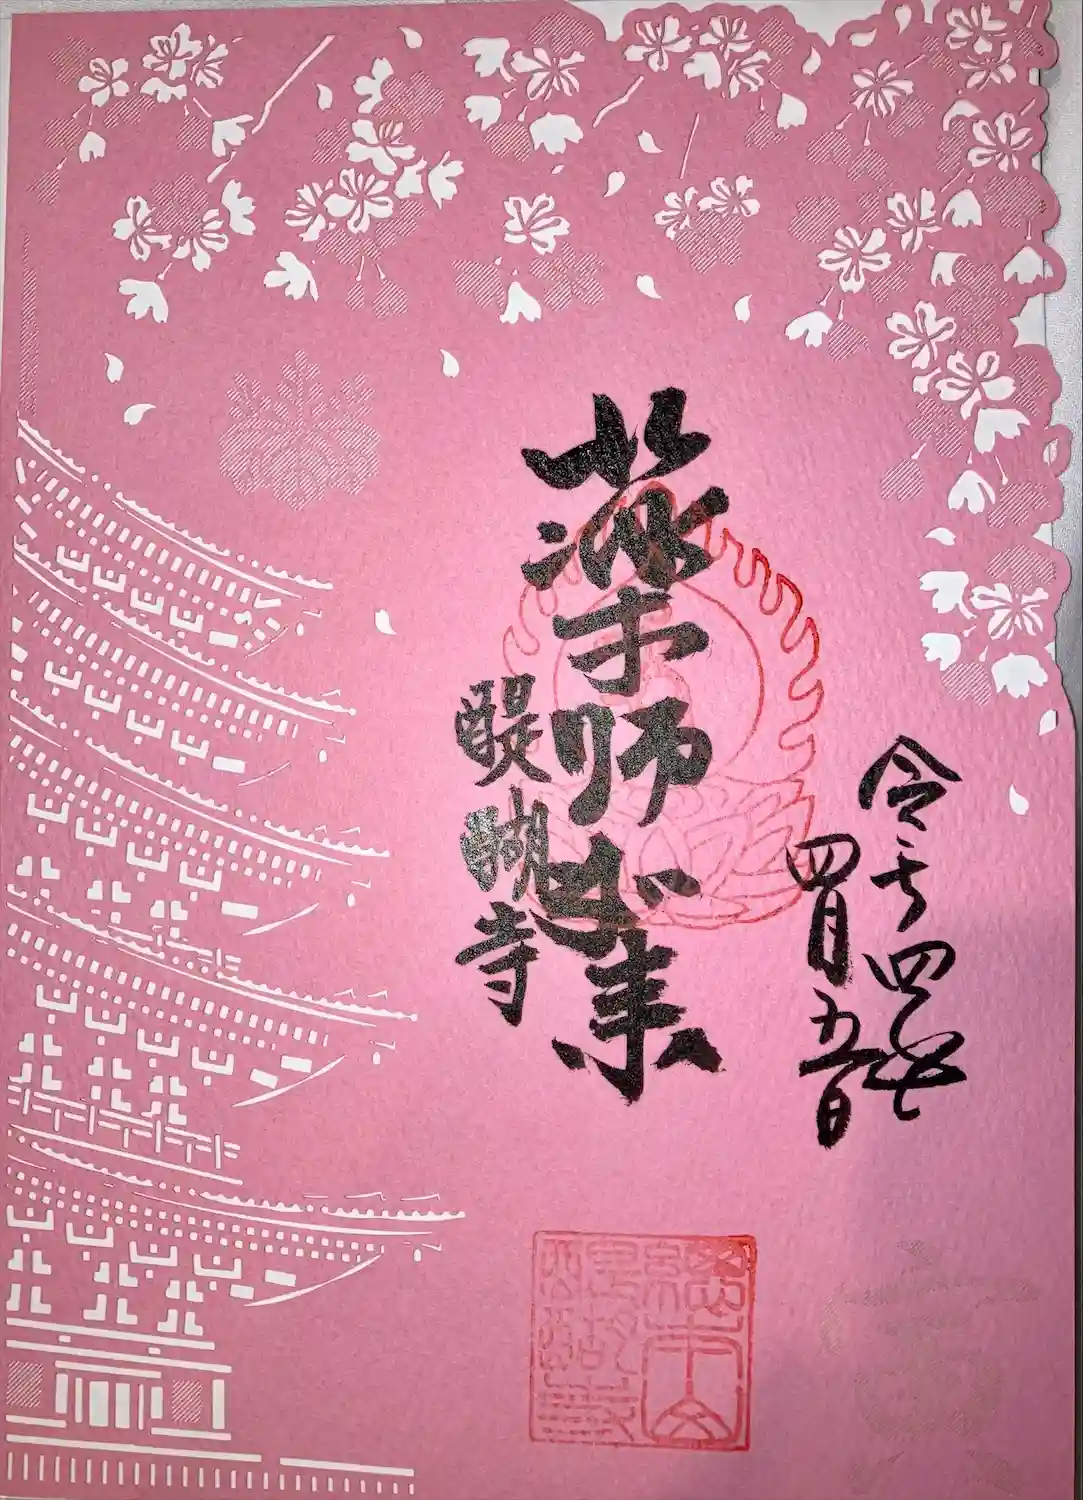 令和四年
四月五日
薬師如来
醍醐寺